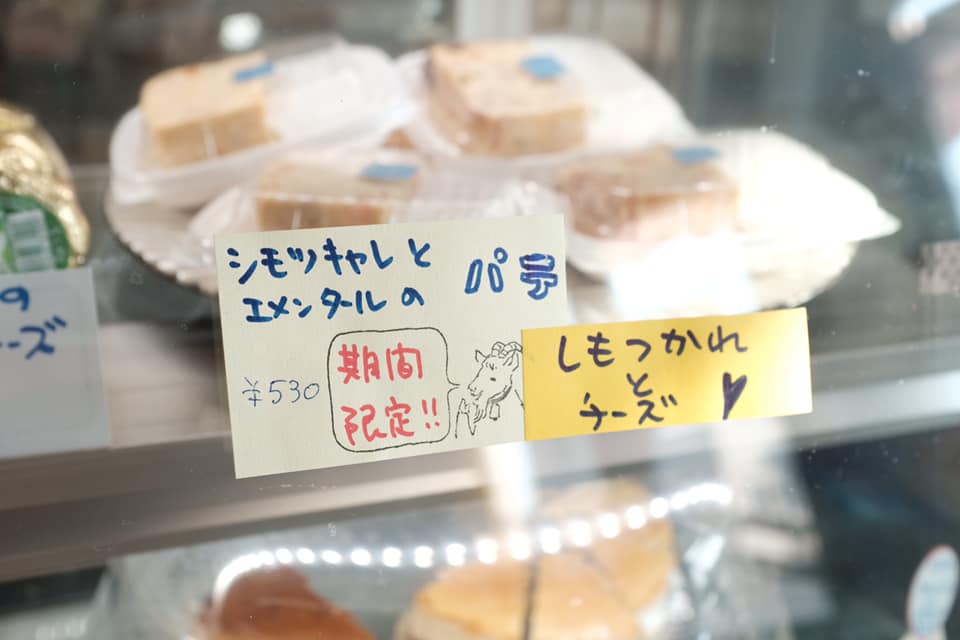 シモツキャレと
エメンタールの パ号
¥530
期間
限定!!
しもつかれ
と
チーズ
の
ーズ